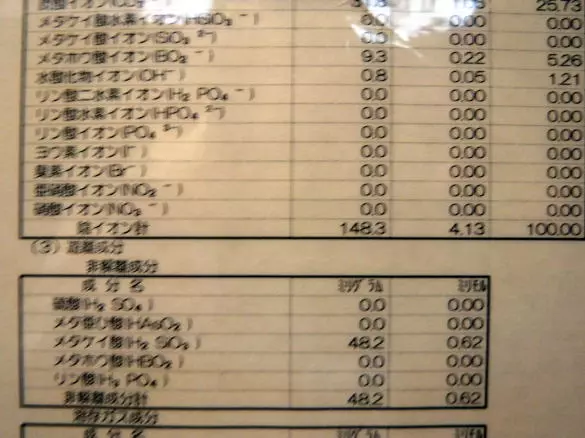 25.73
メタケイ酸水素イオン(HSiO₃ ⁻) 0.0 0.00 0.00
メタケイ酸イオン(SiO₃ ²⁻) 0.0 0.00 0.00
メタホウ酸イオン(BO₂ ⁻) 9.3 0.22 5.26
水酸化物イオン(OH⁻) 0.8 0.05 1.21
リン酸二水素イオン(H₂ PO₄ ⁻) 0.0 0.00 0.00
リン酸水素イオン(HPO₄ ²⁻) 0.0 0.00 0.00
リン酸イオン(PO₄ ³⁻) 0.0 0.00 0.00
ヨウ素イオン(I⁻) 0.0 0.00 0.00
臭素イオン(Br⁻) 0.0 0.00 0.00
亜硝酸イオン(NO₂ ⁻) 0.0 0.00 0.00
硝酸イオン(NO₃ ⁻) 0.0 0.00 0.00
陰イオン計 148.3 4.13 100.00
(3) 遊離成分
非解離成分
成 分 名 ミリグラム ミリモル
硫酸(H₂ SO₄) 0.0 0.00
メタ亜ひ酸(HAsO₂) 0.0 0.00
メタケイ酸(H₂ SiO₃) 48.2 0.62
メタホウ酸(HBO₂) 0.0 0.00
リン酸(H₃ PO₄) 0.0 0.00
非解離成分計 48.2 0.62
溶存ガス成分
成 分 名 ミリグラム ミリモル